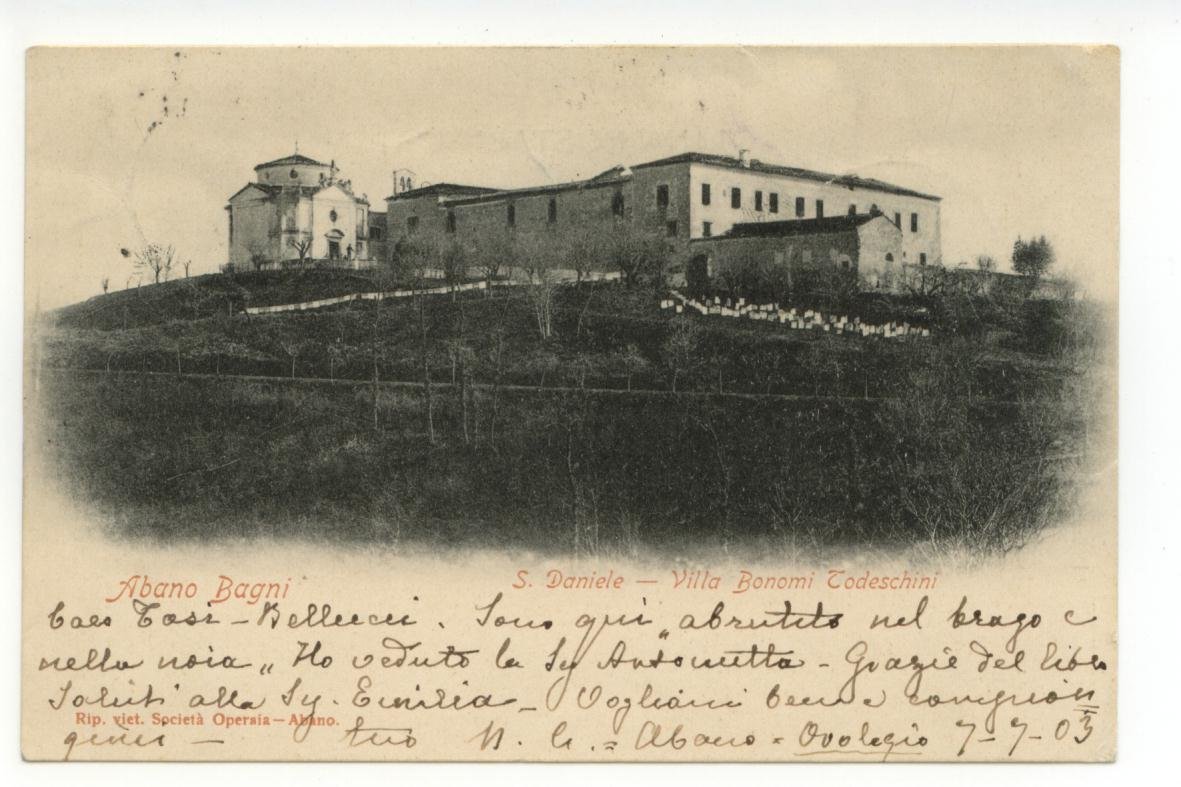 Abano Bagni
S. Daniele — Villa Bonomi Todeschini
Caro Tosi-Bellucci. Sono qui "abrutito nel brago e
nella noia" Ho veduto la Sig Antonietta - Grazie del libro
Saluti alla Sig. Emilia - Vogliami bene e
Rip. viet. Società Operaia—Abano.
— tuo N. G. = Abano = Orologio 7-7-03